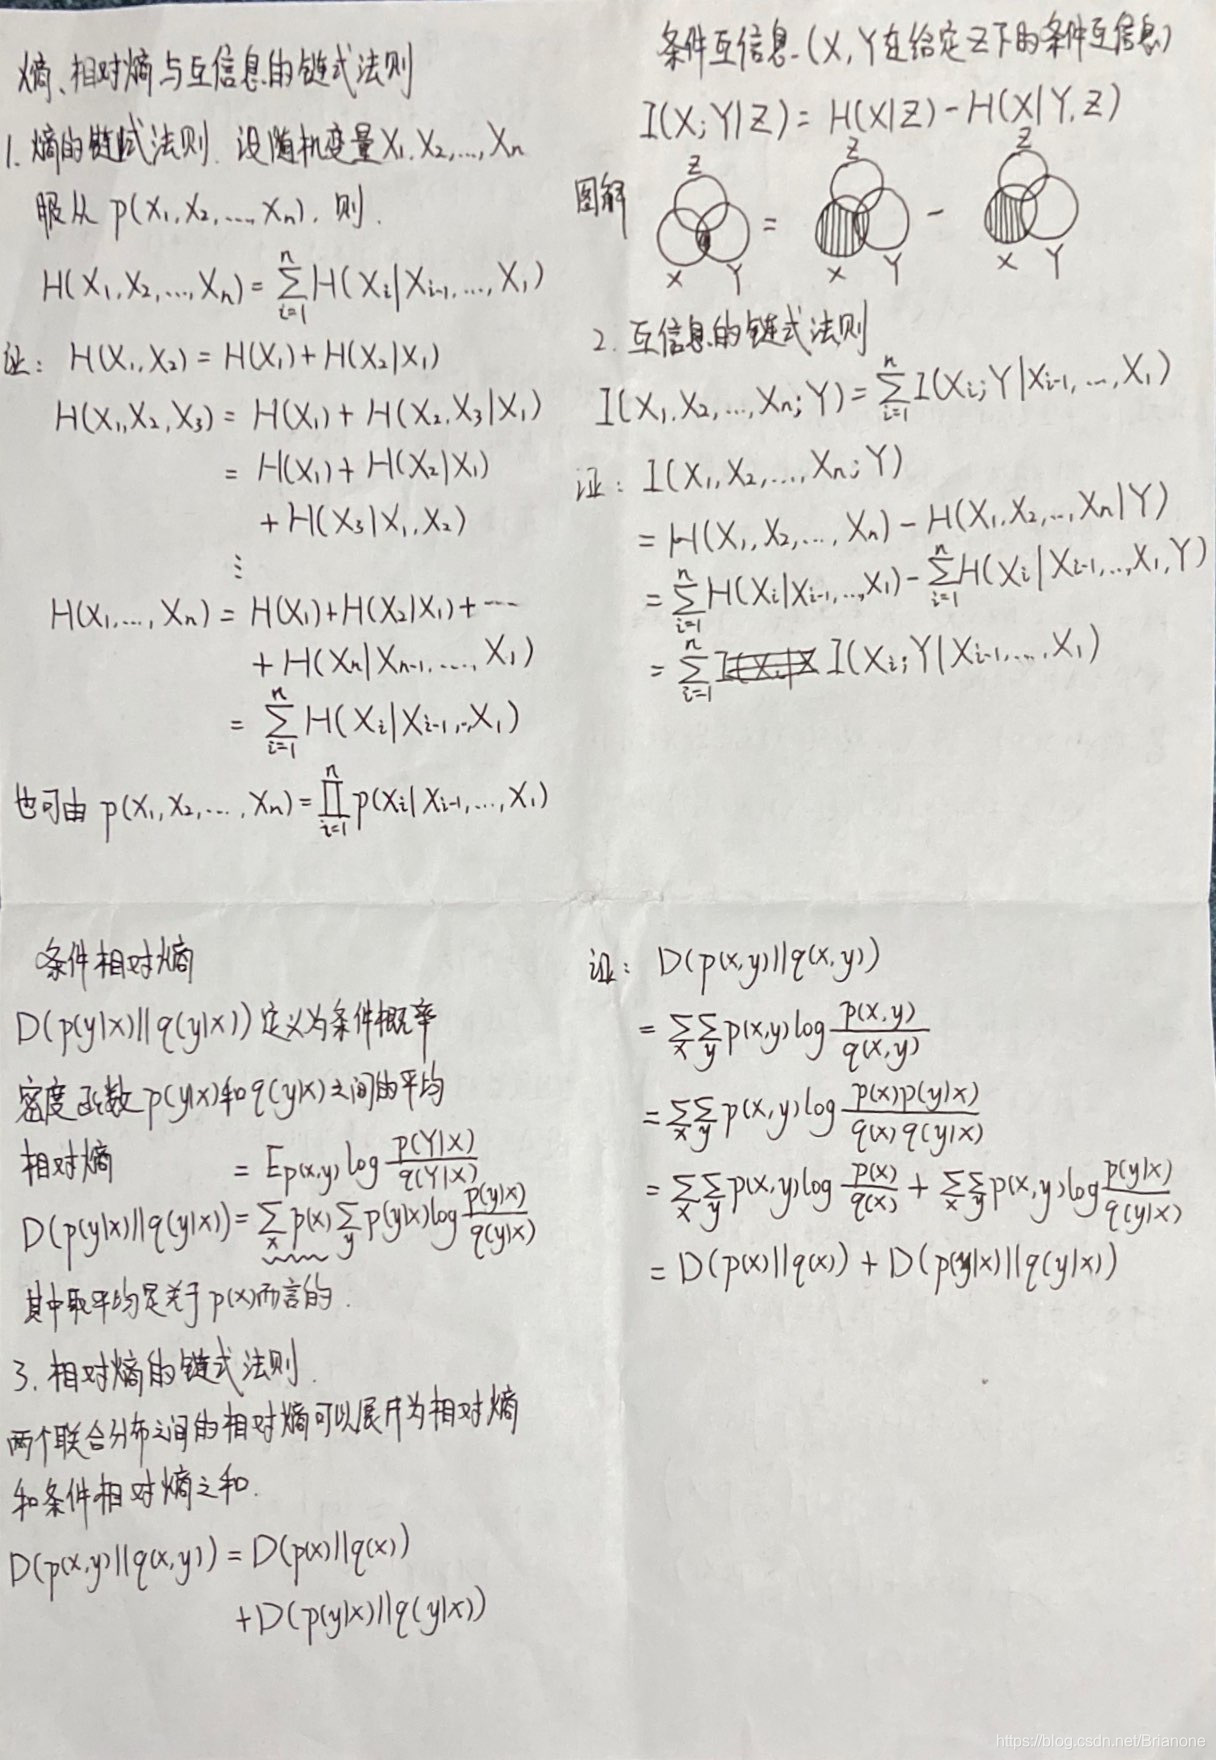 熵、相对熵与互信息的链式法则
1. 熵的链式法则. 设随机变量X₁, X₂, ..., Xₙ
服从 p(X₁, X₂, ..., Xₙ), 则.
H(X₁, X₂, ..., Xₙ) = ∑ᵢ₌₁ⁿ H(Xᵢ|Xᵢ₋₁, ..., X₁)
证: H(X₁, X₂) = H(X₁) + H(X₂|X₁)
H(X₁, X₂, X₃) = H(X₁) + H(X₂, X₃|X₁)
= H(X₁) + H(X₂|X₁)
+ H(X₃|X₁, X₂)
⋮
H(X₁, ..., Xₙ) = H(X₁) + H(X₂|X₁) + ...
+ H(Xₙ|Xₙ₋₁, ..., X₁)
= ∑ᵢ₌₁ⁿ H(Xᵢ|Xᵢ₋₁, .., X₁)
也可由 p(X₁, X₂, ..., Xₙ) = ∏ᵢ₌₁ⁿ p(Xᵢ|Xᵢ₋₁, ..., X₁)
条件互信息. (X, Y在给定Z下的条件互信息)
I(X; Y|Z) = H(X|Z) - H(X|Y, Z)
图解
Z Z Z
= -
X Y X Y X Y
2. 互信息的链式法则
I(X₁, X₂, ..., Xₙ; Y) = ∑ᵢ₌₁ⁿ I(Xᵢ; Y|Xᵢ₋₁, ..., X₁)
证: I(X₁, X₂, ..., Xₙ; Y)
= H(X₁, X₂, ..., Xₙ) - H(X₁, X₂, ..., Xₙ|Y)
= ∑ᵢ₌₁ⁿ H(Xᵢ|Xᵢ₋₁, .., X₁) - ∑ᵢ₌₁ⁿ H(Xᵢ|Xᵢ₋₁, .., X₁, Y)
= ∑ᵢ₌₁ⁿ I(Xᵢ; Y|Xᵢ₋₁, ..., X₁)
条件相对熵
D(p(y|x)||q(y|x)) 定义为条件概率
密度函数 p(y|x)和q(y|x)之间的平均
相对熵 = E p(x,y) log p(Y|X)/q(Y|X)
D(p(y|x)||q(y|x)) = ∑ₓ p(x) ∑y p(y|x) log p(y|x)/q(y|x)
其中取平均是关于p(x)而言的.
3. 相对熵的链式法则.
两个联合分布之间的相对熵可以展开为相对熵
和条件相对熵之和.
D(p(x,y)||q(x,y)) = D(p(x)||q(x))
+ D(p(y|x)||q(y|x))
证: D(p(x,y)||q(x,y))
= ∑ₓ∑y p(x,y) log p(x,y)/q(x,y)
= ∑ₓ∑y p(x,y) log p(x)p(y|x)/q(x)q(y|x)
= ∑ₓ∑y p(x,y) log p(x)/q(x) + ∑ₓ∑y p(x,y) log p(y|x)/q(y|x)
= D(p(x)||q(x)) + D(p(y|x)||q(y|x))
https://blog.csdn.net/Brianone